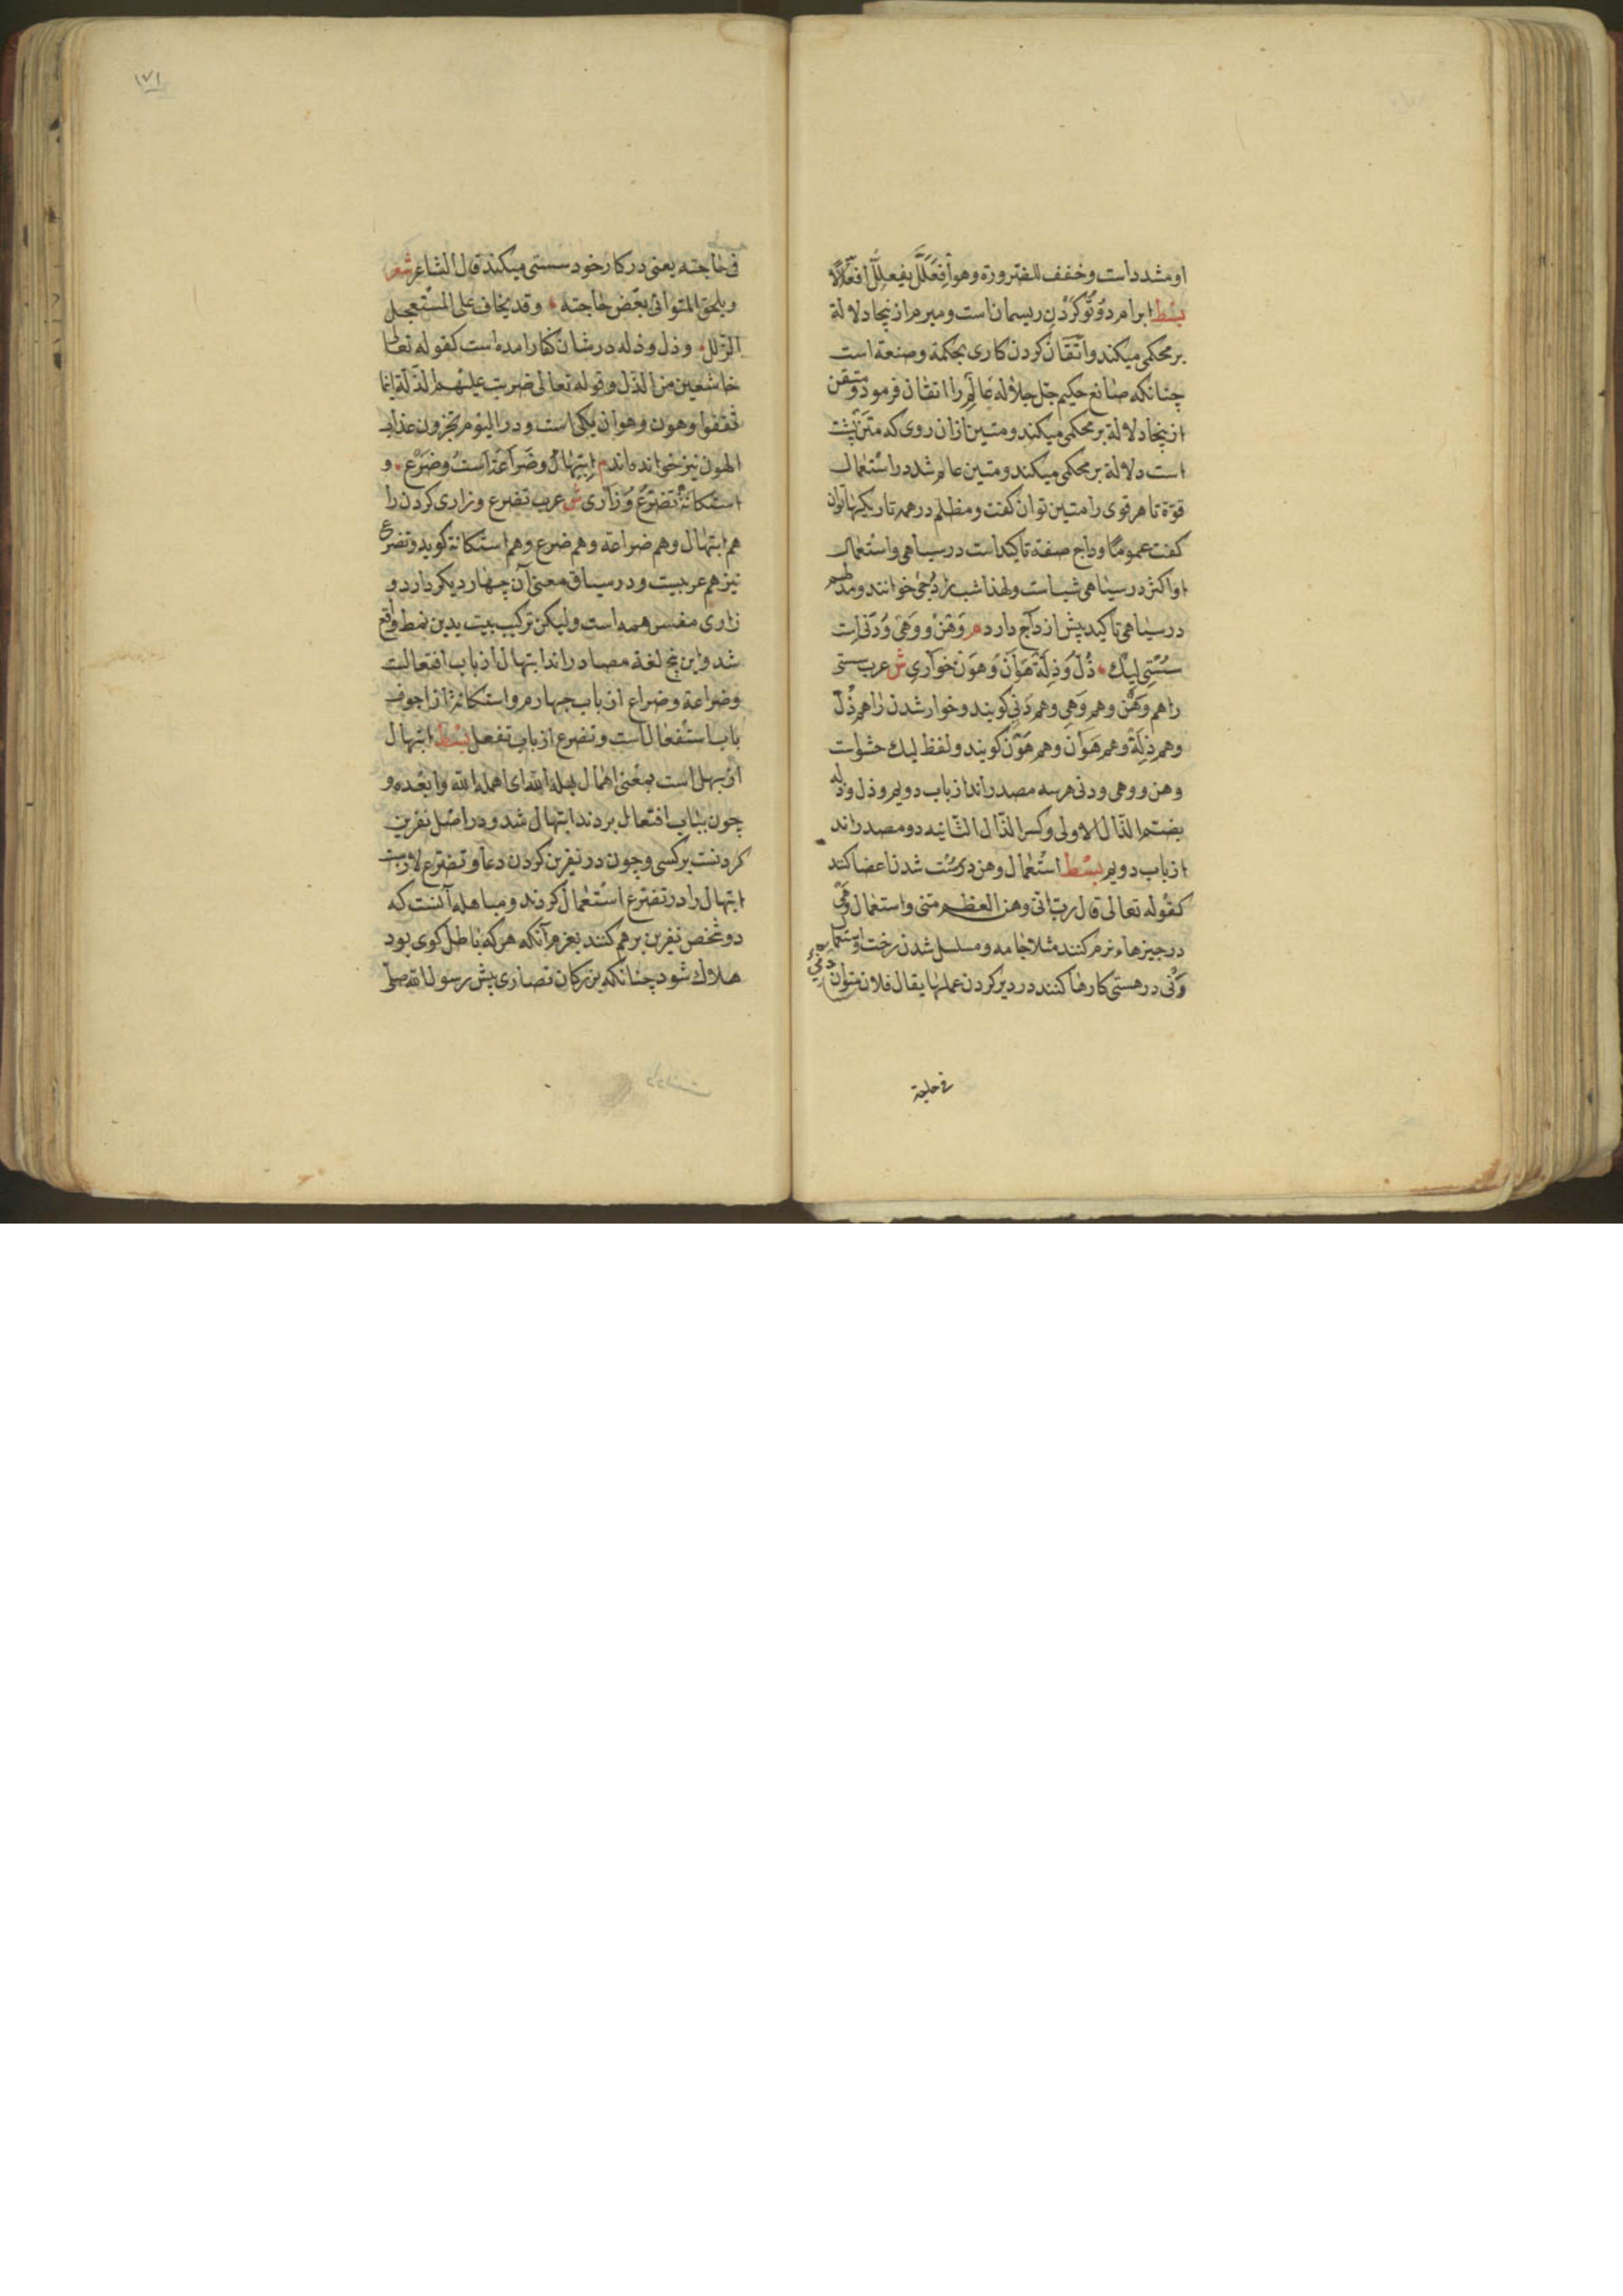 او مشدد است و خفف للضرورة و هو افْعَلَلَّ یفعلِلُّ افعلّالا
بسْط ابرام دُوتُو کَرْدَنِ ریسمان است و مبرم از نیجا دلالة
بر محکمی میکند و اتقان کردن کاری بحکمة و صنعة است
چنانکه صانع حکیم جل جلاله عالم را اتقان فرمود و متقن
از نیجا دلالة بر محکمی میکند و متین از آن روی که متن پشت
است دلالة بر محکمی میکند و متین عام شد در استعمال
قوة تا هر قوی را متین توان کفت و مظلم در همه تاریکیها توان
کفت عموما و داج صفة تاکید است در سیاهی و استعمال
او اکثر در سیاهی شب است و لهذا شب را دُجی خوانند و مدلهم
در سیاهی تاکید بیش از داج دارد م وَهْن و وَهْی وَ وَنی است
سُسْتِی لیک ذُلّ وَ ذِلَّة هَوَان وَ هَوْن خواری ش عرب سستی
را هم وَهْن و هم وَهْی و هم وَنی کویند و خوار شدن را هم ذُلّ
و هم ذِلَّة و هم هَوَان و هم هَوْن کویند و لفظ لیک حشو است
وهن و وهی و ونی هرسه مصدراند از باب دویم و ذل و ذله
بضم الذال الاولی و کسر الذال الثانیه دو مصدراند
از باب دویم بسْط استعمال وهن در سُست شدن اعضا کنند
کقوله تعالی قال رب انی وهن العظم منی و استعمال وَهْی
در چیزهاء نرم کنند مثلا جامه و مسلسل شدن رخت و استعمال
وَنْی در هستی کارها کنند در دیر کردن عملها یقال فلان متوان
فی حاجته
۱۷۱
فی حاجته یعنی در کار خود سستی میکند قال الشاعر شعر
و یلحق المتوانی بعض حاجته و قد یخاف علی المستعجل
الزلل و ذل و ذله در شان کفار آمده است کقوله تعالی
خاشعین من الذل و قوله تعالی ضربت علیهم الذلة اینما
ثقفوا و هون و هوان یکی است و در الیوم تجزون عذاب
الهون نیز خوانده اند م اِبتهال و ضراعة است و ضَرَع و
استکانة تضرّع وَ زاری ش عرب تضرع و زاری کردن را
هم ابتهال و هم ضراعة و هم ضرع و هم استکانة کوید و تضرع
نیز هم عربیست و در سیاق معنی آن چهار دیکر دارد و
زاری مفسر همه است ولیکن ترکیب بیت بدین نمط واقع
شد و این پنج لغة مصادراند ابتهال از باب افتعالست
و ضراعة و ضراع از باب چهارم و استکانة از اجوف
باب استفعال است و تضرع از باب تفعل بسْط ابتهال
از بهل است بمعنی اهمال بهله الله ای اهمله الله و ابعده و
چون بباب افتعال بردند ابتهال شد و در اصل نفرین
کردنست بر کسی و چون در نفرین کردن دعا و تضرع لازمست
ابتهال را در تضرع استعمال کردند و مباهله آنست که
دو شخص نفرین بر هم کنند بعزم آنکه هر که باطل کوی بود
هلاک شود چنانکه بزرکان نصاری پیش رسول الله صلی